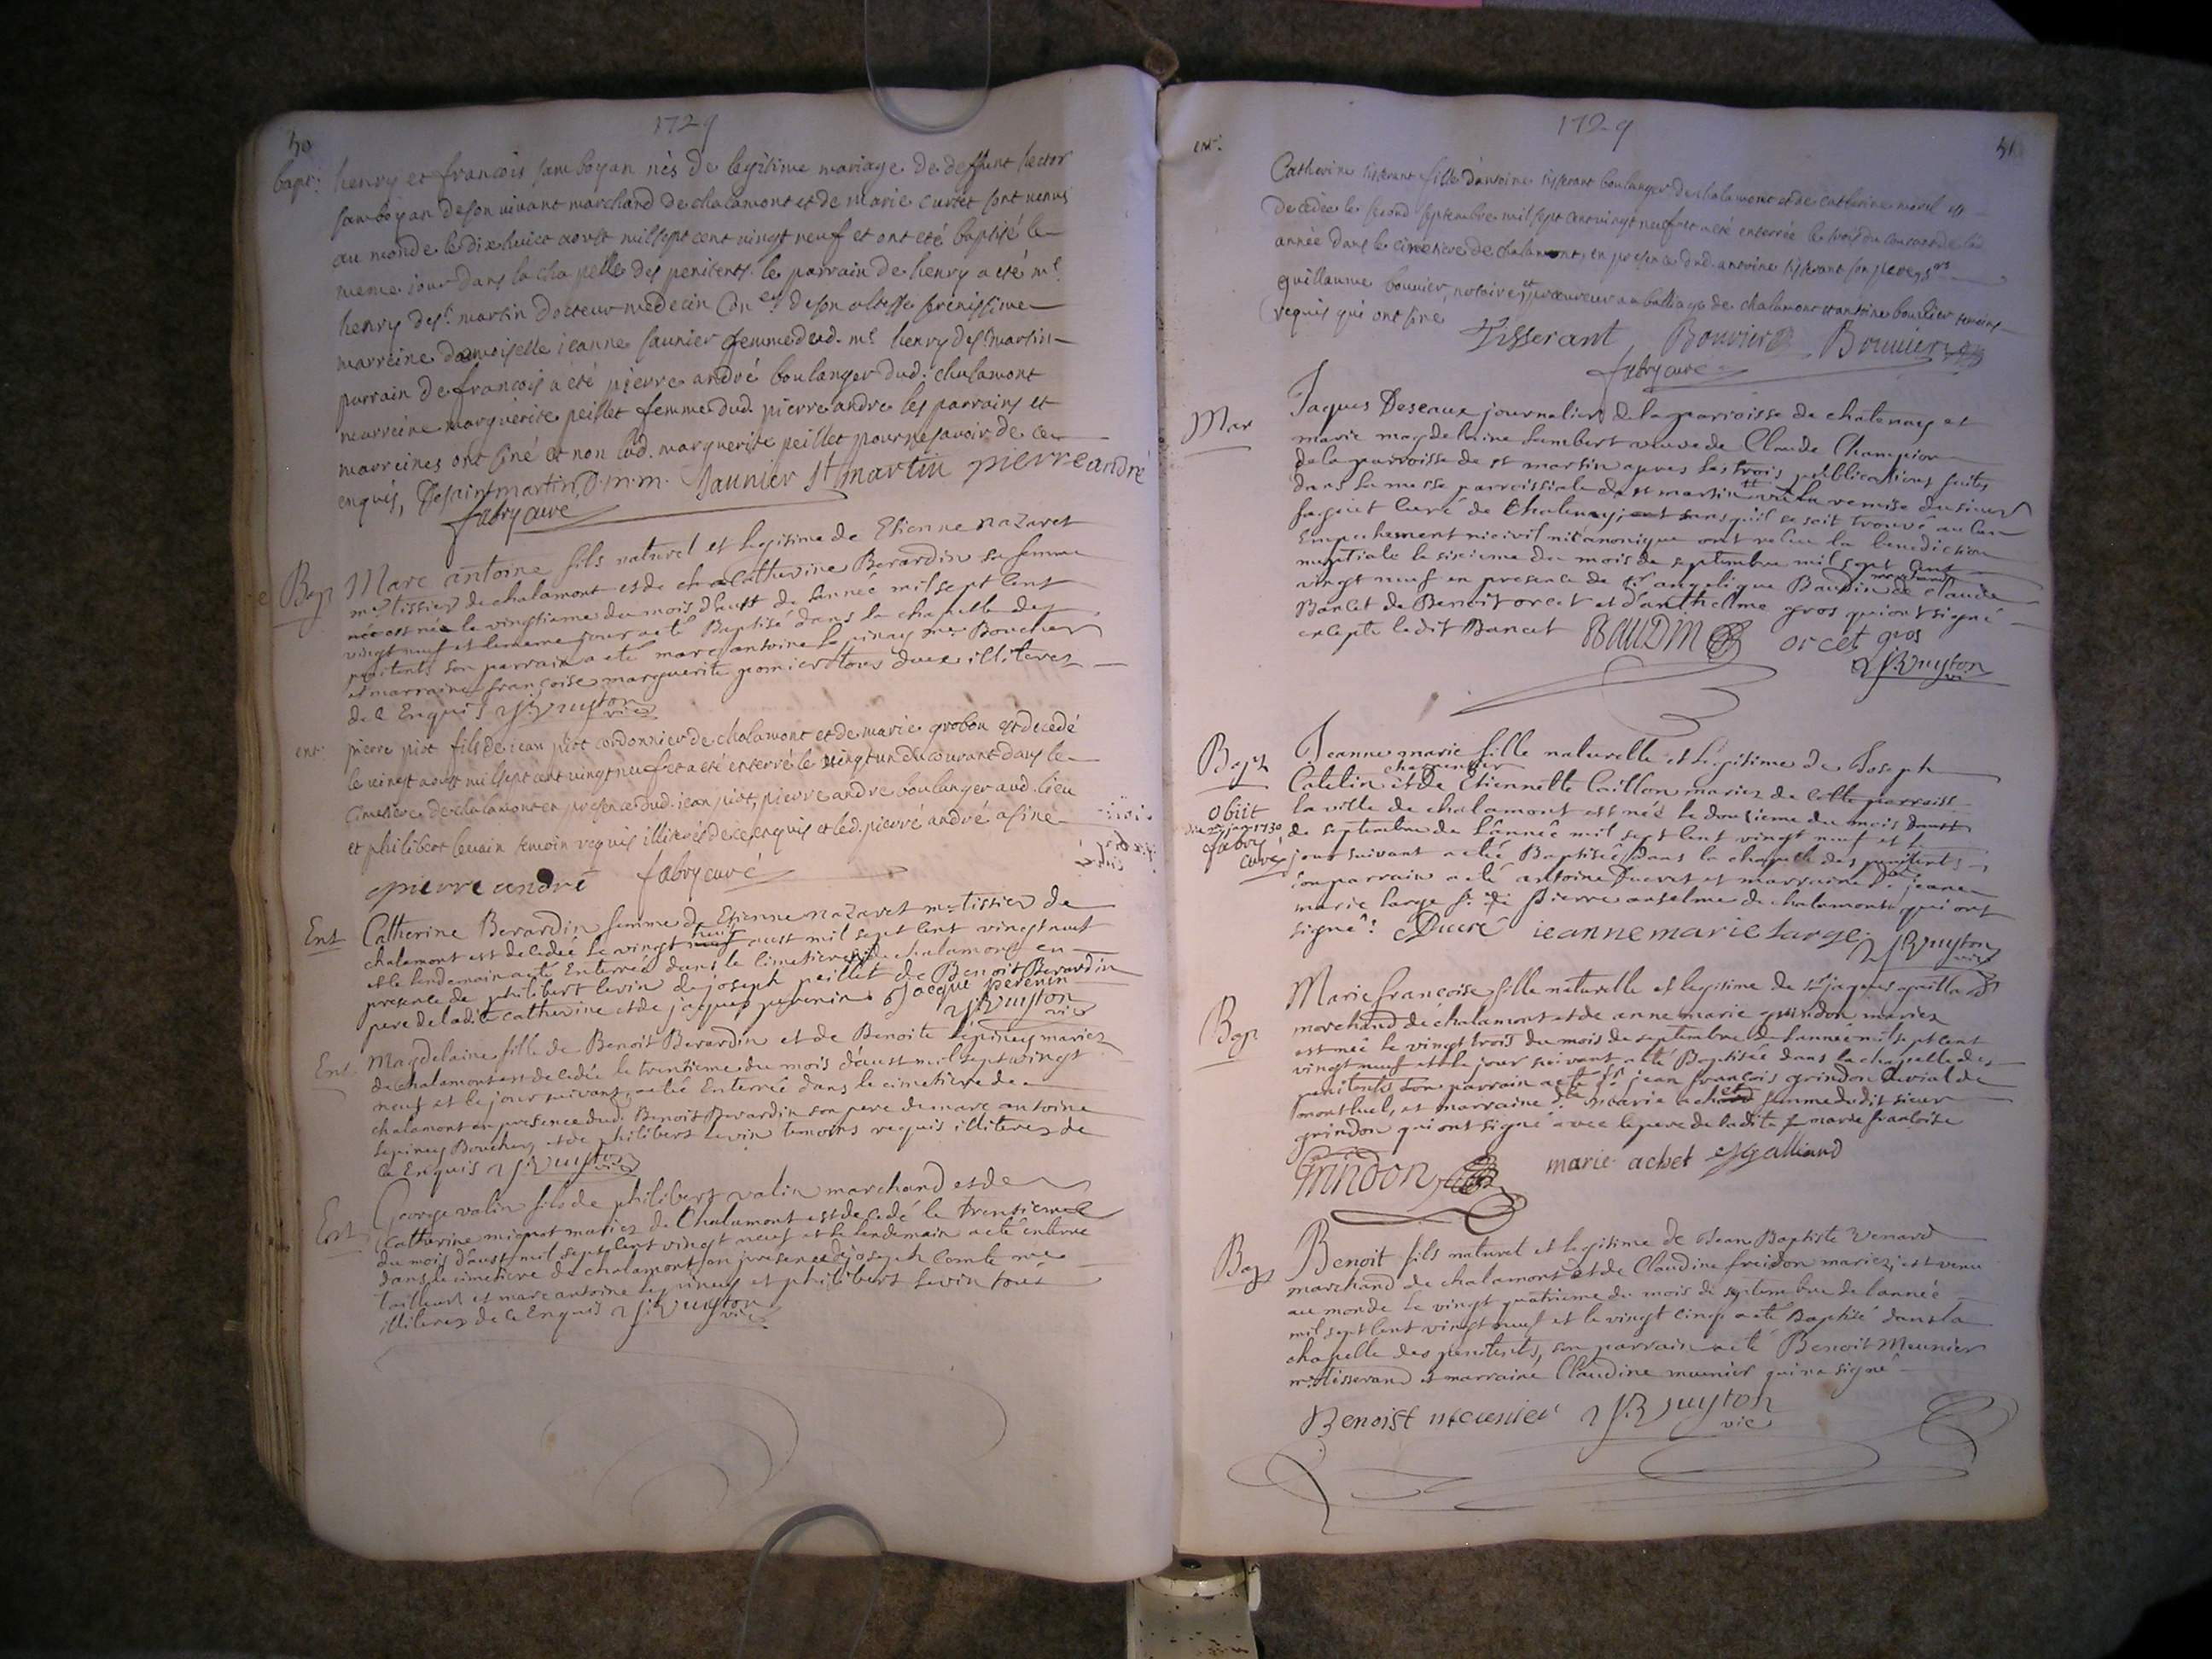 50
1729
bapt: henry et francois samboyan nés de legitime mariage de deffunt hector
samboyan de son vivant marchand de chalamont et de marie curtet sont venus
au monde le dix huict aoust mil sept cent vingt neuf et ont eté baptisé le
meme jour dans la chapelle des penitents. le parrain de henry a eté mr
henry de st martin docteur medecin con er de son altesse serenissime
marreine damoiselle jeanne saunier femme dud. mr henry de st martin
parrain de francois a eté pierre andré boulanger dud. chalamont
marreine marguerite peillet femme dud. pierre andre les parrains et
marreines ont siné et non lad. marguerite peillet pour ne savoir de ce
enquis, De saint martin D.m.m. Saunier st martin pierre andré
fabry curé
Bap Marc antoine fils naturel et legitime de Etienne nazaret
mre tissier de chalamont et de catherine Berardin sa femme
est né le vingtieme du mois d'aust de l'année mil sept cent
vingt neuf et le meme jour a eté Baptisé dans la chapelle des
penitents son parrain a eté marc antoine lepinay mre Boucher
et marraine françoise marguerite pomier tous deux illiterez
de ce Enquis Vuyton vic
ent: pierre piot fils de jean piot cordonnier de chalamont et de marie grobon est decedé
le vingt aoust mil sept cent vingt neuf et a eté enterré le vingt un du courant dans le
cimetiere de chalamont en presence dud. jean piot, pierre andre boulanger aud. lieu
et philibert levain temoin requis illiterés de ce enquis et led. pierre andré a siné
pierre andré fabry curé
Ent Catherine Berardin femme de Etienne nazaret mre tissier de
chalamont est decedée le vingt huit aust mil sept cent vingt neuf
et le lendemain a eté Enterrée dans le cimetiere de chalamont en
presence de philibert levin de joseph peillet de Benoit Berardin
pere de ladite catherine et de jacques perenin jacque perenin
Vuyton vic
Ent Magdelaine fille de Benoit Berardin et de Benoite Lépiney mariez
de chalamont est decedée le trentieme du mois d'aust mil sept vingt
neuf et le jour suivant a eté Enterrée dans le cimetiere de
chalamont en presence dud. Benoit Berardin son pere de marc antoine
lepiney Boucher et de philibert levin temoins requis illiterez de
ce Enquis Vuyton vic
Ent George valin fils de philibert valin marchand et de
Catherine mignot mariez de Chalamont est decedé le trentieme
du mois d'aust mil sept cent vingt neuf et le lendemain a eté enterré
dans le cimetiere de chalamont en presence de joseph Comte mre
tailleur et marc antoine lepiney et philibert levin tous
illiterez de ce Enquis Vuyton vic
1729
51
ent: Catherine tisserant fille d'antoine tisserant boulanger de chalamont et de catherine morel est
decedée le second septembre mil sept cent vingt neuf et a eté enterrée le trois du courant de lad
année dans le cimetiere de chalamont, en presence dud. antoine tisserant son pere
guillaume bouvier, notaire et procureur au balliage de chalamont et antoine bouvier temoins
requis qui ont siné Tisserant Bouvier Bouvier
fabry curé
Mar Jaques Deseaux journalier de la parroisse de chatenay et
marie magdelaine lambert veuve de Claude Champion
de la parroisse de st martin apres les trois publications faites
dans la messe parroissiale de st martin vu la remise du sieur
curé de Chatenay, sans qu'il se soit trouvé aucun
Empechement ni civil ni canonique ont recu la benediction
nuptiale le sixieme du mois de septembre mil sept cent
vingt neuf en presence de sr angelique Baudin marchand de Claude
Bancet de Benoit orcet et d'anthelme gros qui ont signé
excepté ledit Bancet BAUDIN orcet gros
Vuyton vic
Bap Jeanne marie fille naturelle et legitime de Joseph
Catelin charpentier et de Etiennette Caillon mariez de cette parroiss
obiit la ville de chalamont est née le douzieme du mois
jan 1730 de septembre de l'année mil sept cent vingt neuf et le
fabry curé jour suivant a eté Baptisée dans la chapelle des penitents
son parrain a eté antoine Ducret et marraine jeanne
marie large de pierre anselme de chalamont qui ont
signé: Ducré jeanne marie large Vuyton vic
Bap Marie françoise fille naturelle et legitime de sr jaques galliand
marchand de chalamont et de anne marie grindon mariez
est née le vingt trois du mois de septembre de l'année mil sept cent
vingt neuf et le jour suivant a eté Baptisée dans la chapelle des
penitents son parrain a eté sr jean françois grindon de
montluel, et marraine marie achet femme dudit sieur
grindon qui ont signé avec le pere de ladite marie francoise
Grindon marie achet galliand
Bap Benoit fils naturel et legitime de Jean Baptiste Venard
marchand de chalamont et de Claudine freidon mariez, est venu
au monde le vingt quatrieme du mois de septembre de l'année
mil sept cent vingt neuf et le vingt cinq a eté Baptisé dans la
chapelle des penitents, son parrain a eté Benoit Meunier
mre tisserand et marraine Claudine meunier qui na signé
Benoist meunier Vuyton vic